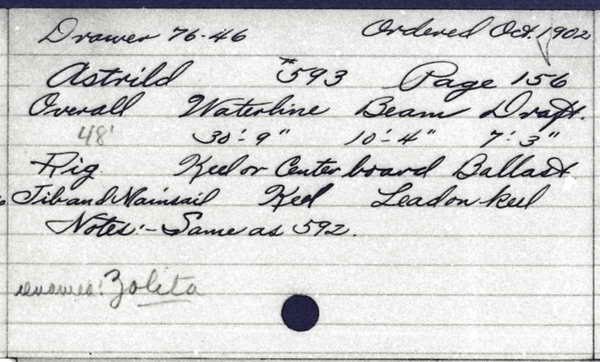 Drawer 76-46 Ordered Oct. 1902
Astrild #593 Page 156
Overall Waterline Beam Draft.
48' 30'-9" 10'-4" 7'-3"
Rig Keel or Centerboard Ballast
Jib and Mainsail Keel Lead on keel
Notes:- Same as 592.
renamed: Zolita